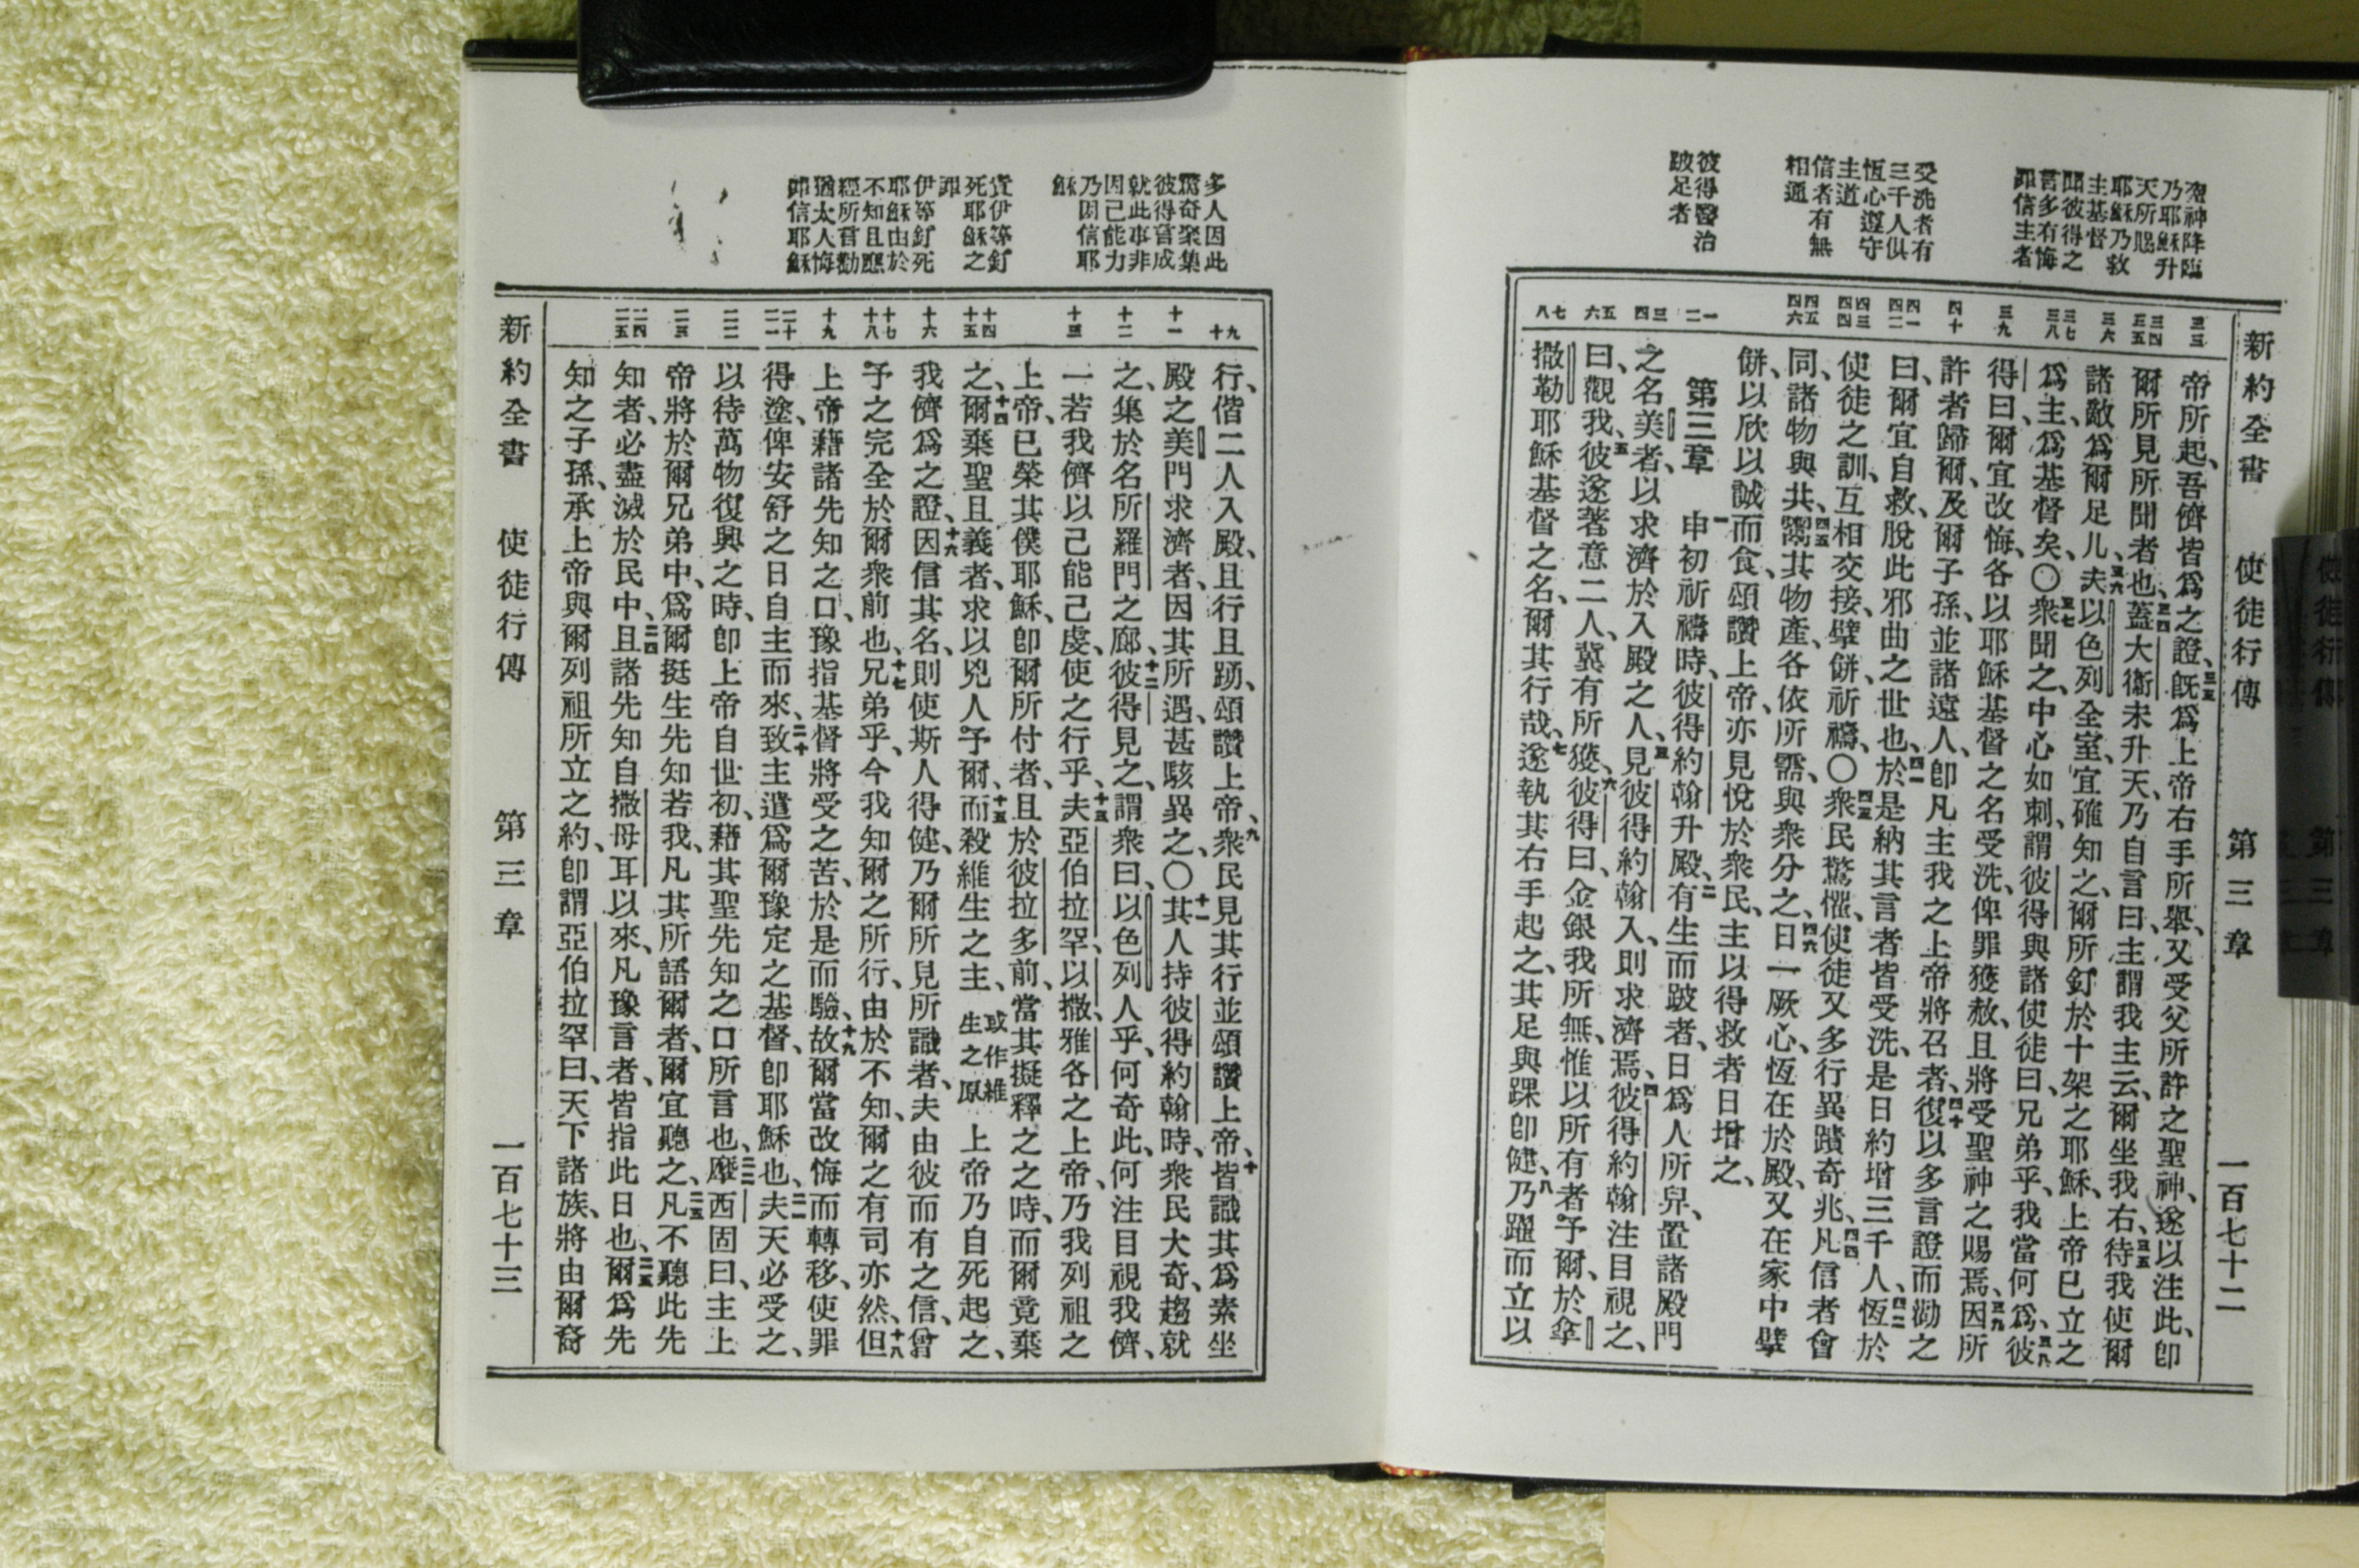 新約全書 使徒行傳 第三章 一百七十二
聖神降臨
乃耶穌升
天所賜
耶穌乃救
主基督
聞彼得之
言多有悔
罪信主者
受洗者有
三千人俱
恆心遵守
主道
信者有無
相通
彼得醫治
跛足者
三三
三四 三五
三六
三七 三八
三九
四十
四一 四二
四三 四四
四五 四六
一 二
三 四
五 六
七 八
帝所起、吾儕皆爲之證、三三既爲上帝右手所舉、又受父所許之聖神、遂以注此、卽
爾所見所聞者也、三四蓋大衞未升天、乃自言曰、主謂我主云、爾坐我右、三五待我使爾
諸敵爲爾足几、三六夫以色列全室、宜確知之、爾所釘於十架之耶穌、上帝已立之
爲主、爲基督矣、〇三七衆聞之、中心如刺、謂彼得與諸使徒曰、兄弟乎、我當何爲、三八彼
得曰、爾宜改悔、各以耶穌基督之名受洗、俾罪獲赦、且將受聖神之賜焉、三九因所
許者歸爾、及爾子孫、並諸遠人、卽凡主我之上帝將召者、四十復以多言證而勸之
曰、爾宜自救、脫此邪曲之世也、四一於是納其言者皆受洗、是日約增三千人、四二恆於
使徒之訓、互相交接、擘餅、祈禱、〇四三衆民驚懼、使徒又多行異蹟奇兆、四四凡信者會
同、諸物與共、四五鬻其物產、各依所需、與衆分之、四六日一厥心、恆在於殿、又在家中擘
餅、以欣以誠而食、頌讚上帝、亦見悅於衆民、主以得救者日增之、
第三章 一申初祈禱時、彼得約翰升殿、二有生而跛者、日爲人所舁、置諸殿門
之名美者、以求濟於入殿之人、三見彼得約翰入、則求濟焉、四彼得約翰注目視之、
曰、觀我、五彼遂著意二人、冀有所獲、六彼得曰、金銀我所無、惟以所有者予爾、於拿
撒勒耶穌基督之名、爾其行哉、七遂執其右手起之、其足與踝卽健、八乃躍而立以
多人因此
驚奇聚集
彼得言成
就此事非
因己能力
乃因信耶
穌
責伊等釘
死耶穌之
罪
伊等釘死
耶穌由於
不知且應
經所言勸
猶太人悔
罪信耶穌
九 十
十一
十二
十三
十四 十五
十六
十七 十八
十九
二十 二一
二二
二三
二四 二五
行、偕二人入殿、且行且踴、頌讚上帝、九衆民見其行並頌讚上帝、十皆識其爲素坐
殿之美門求濟者、因其所遇、甚駭異之、〇十一其人持彼得約翰時、衆民大奇、趨就
之、集於名所羅門之廊、十二彼得見之、謂衆曰、以色列人乎、何奇此、何注目視我儕、
一若我儕以己能己虔、使之行乎、十三夫亞伯拉罕、以撒、雅各之上帝、乃我列祖之
上帝、已榮其僕耶穌、卽爾所付者、且於彼拉多前、當其擬釋之之時、而爾竟棄
之、十四爾棄聖且義者、求以兇人予爾、十五而殺維生之主、或作維生之原 上帝乃自死起之、
我儕爲之證、十六因信其名、則使斯人得健、乃爾所見所識者、夫由彼而有之信、曾
予之完全於爾衆前也、十七兄弟乎、今我知爾之所行、由於不知、爾之有司亦然、十八但
上帝藉諸先知之口、豫指基督將受之苦、於是而驗、十九故爾當改悔而轉移、使罪
得塗、俾安舒之日自主而來、二十致主遣爲爾豫定之基督、卽耶穌也、二一夫天必受之、
以待萬物復興之時、卽上帝自世初、藉其聖先知之口所言也、二二摩西固曰、主上
帝將於爾兄弟中、爲爾挺生先知若我、凡其所語爾者、爾宜聽之、二三凡不聽此先
知者、必盡滅於民中、二四且諸先知自撒母耳以來、凡豫言者、皆指此日也、二五爾爲先
知之子孫、承上帝與爾列祖所立之約、卽謂亞伯拉罕曰、天下諸族、將由爾裔
新約全書 使徒行傳 第三章 一百七十三